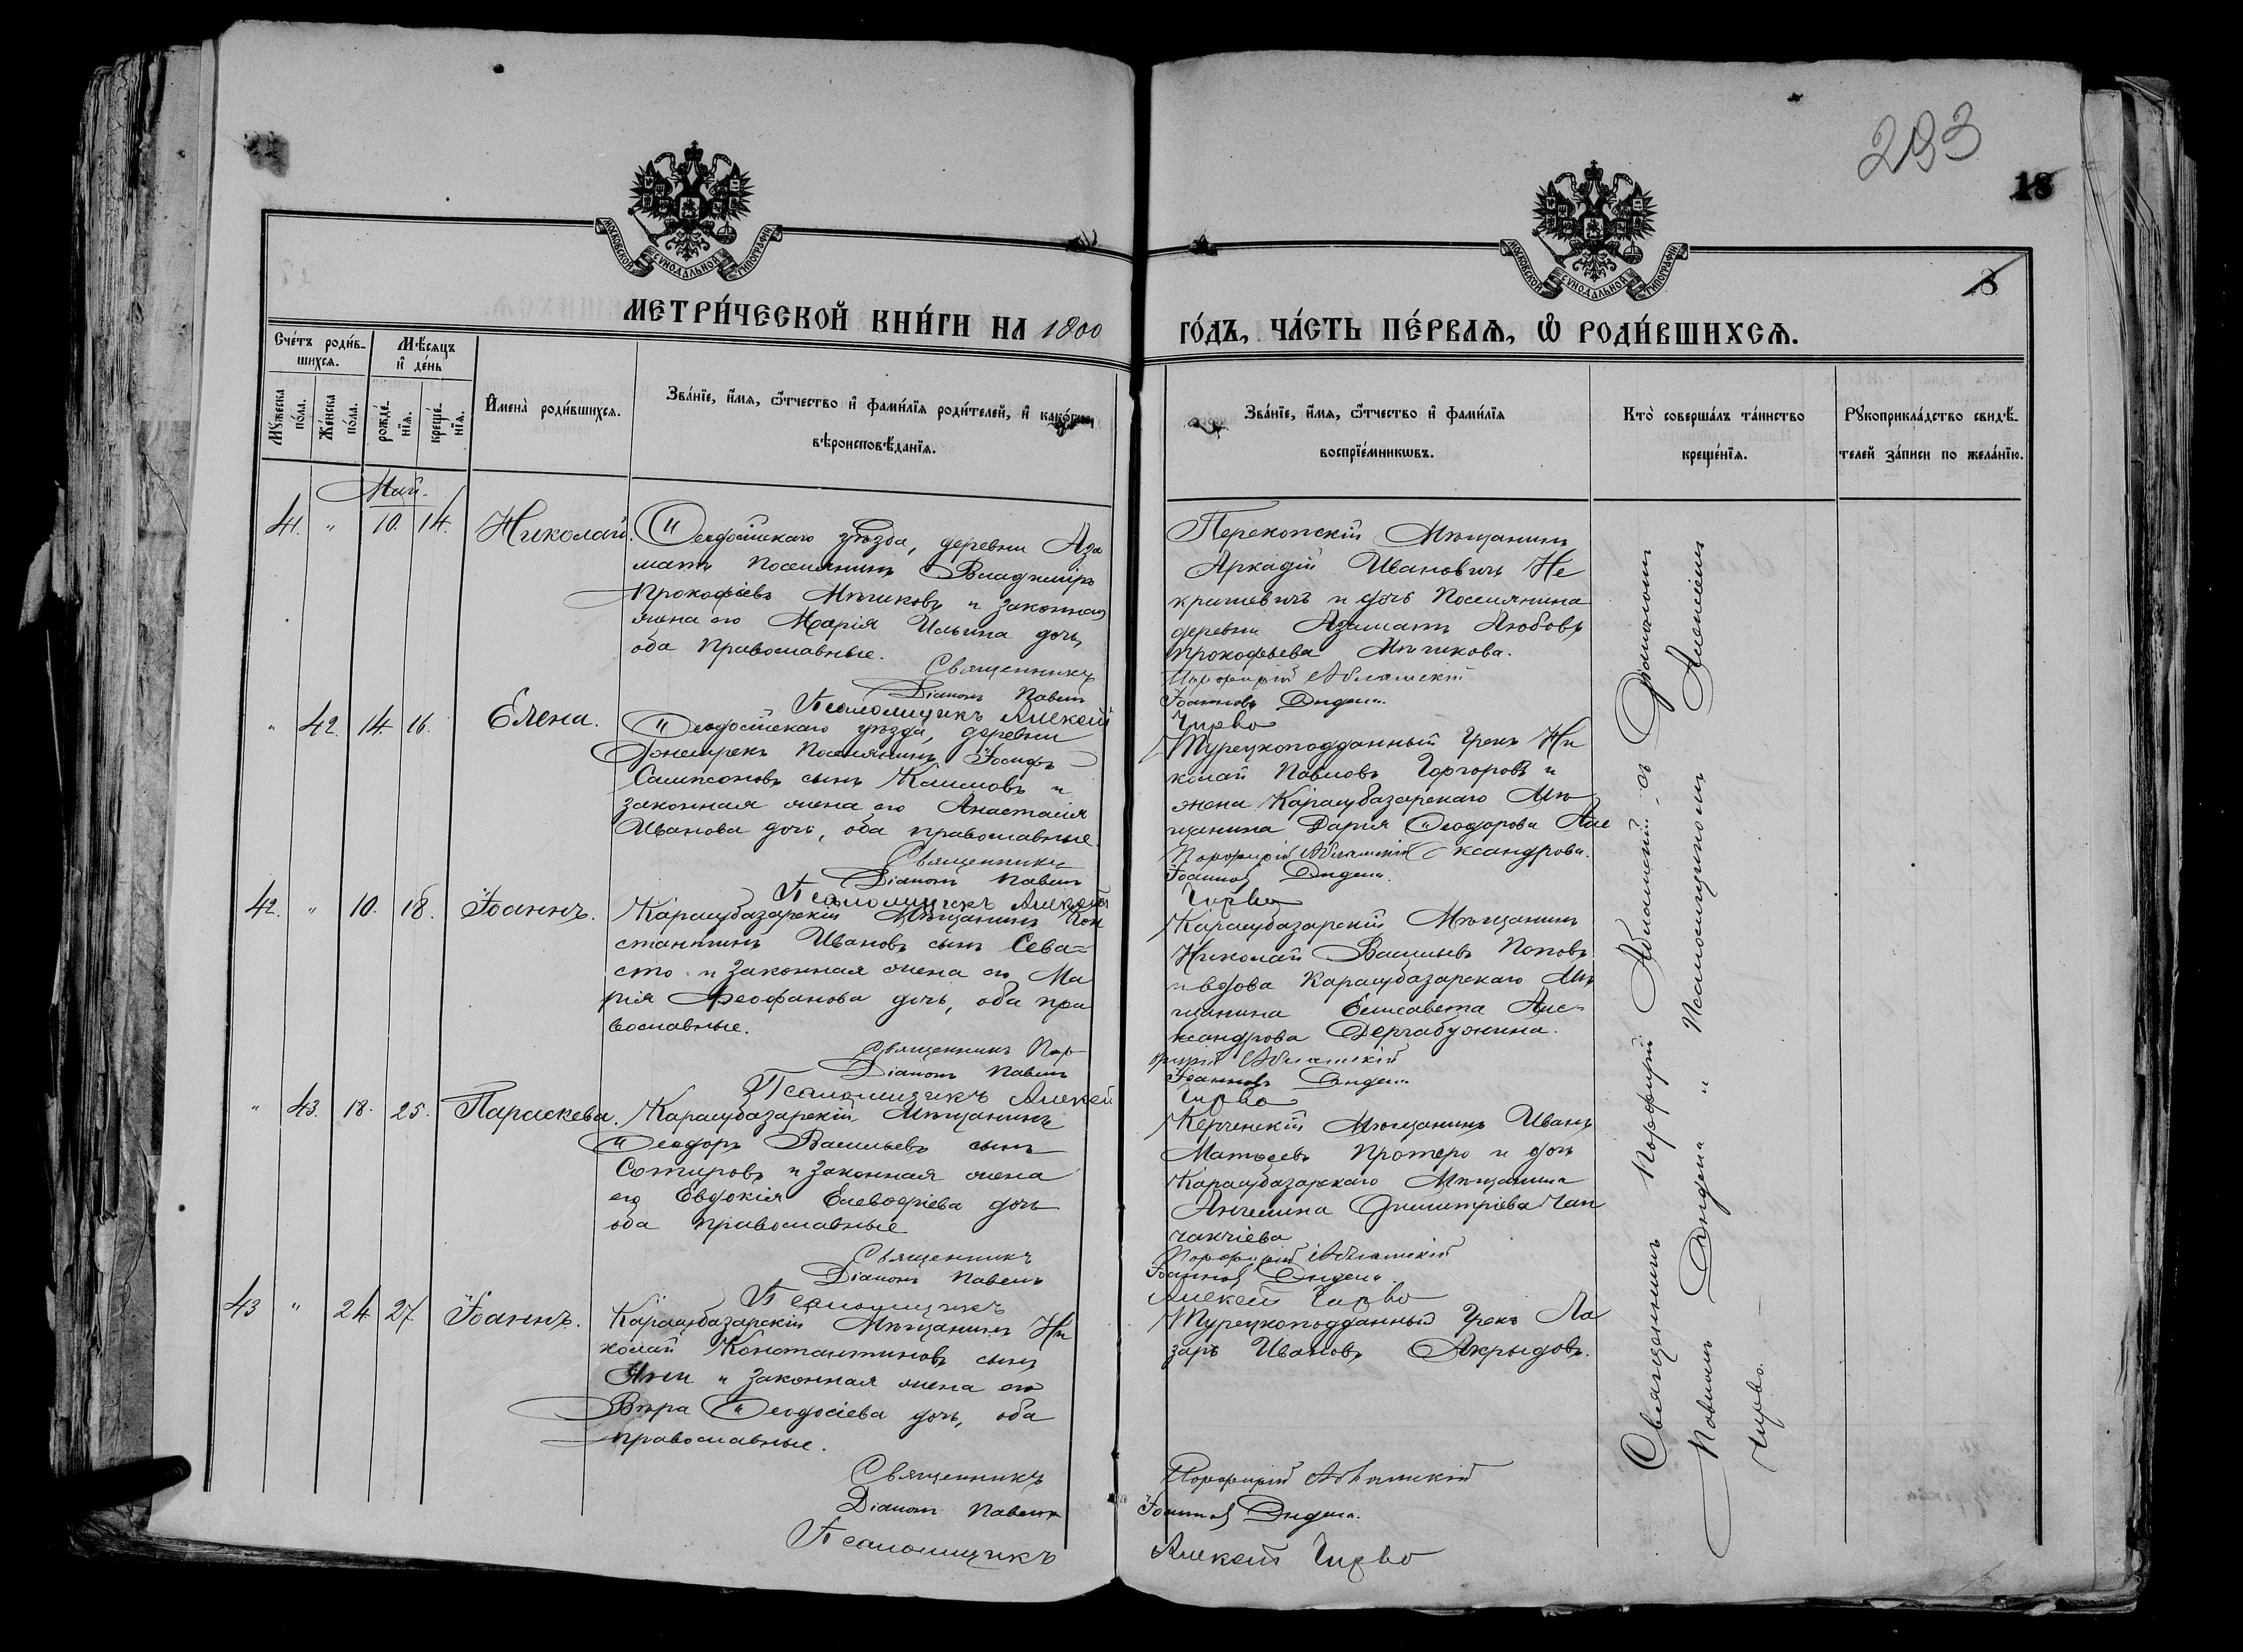 293
18
8
МОСКОВСКОЙ СѴНОДАЛЬНОЙ ТИПОГРАФІИ
МОСКОВСКОЙ СѴНОДАЛЬНОЙ ТИПОГРАФІИ
МЕТРИ́ЧЕСКОЙ КНИ́ГИ НА 1800
ГО́ДЪ, ЧА́СТЬ ПЕ́РВАѦ, Ѡ҆ РОДИ́ВШИХСѦ.
Сче́тъ роди́в-
шихсѧ.
Мѣ́сяцъ
и҆ де́нь
Мꙋ́жеска
по́ла.
Же́нска
по́ла.
рожде́-
нїѧ.
креще́-
нїѧ.
И҆мена̀ роди́вшихсѧ.
Зва́нїе, и҆́мѧ, ѻ҆́тчество и҆ фами́лїѧ роди́телей, и҆ како́гѡ
вѣроисповѣ́данїѧ.
Зва́нїе, и҆́мѧ, ѻ҆́тчество и҆ фами́лїѧ
воспрїе́мникѡвъ.
Кто̀ соверша́лъ та́инство
креще́нїѧ.
Рꙋкоприкла́дство свидѣ́-
телей за́писи по жела́нїю.
Май.
41. " 10. 14. Николай.
Ѳеодосійскаго уѣзда, деревни Аза
матъ Поселянинъ Владиміръ
Прокофіевъ Мѣчиковъ и законная
жена его Марія Ильина дочь,
оба Православные.
Священникъ
Діаконъ Павелъ
Псаломщикъ Алексей
Перекопскій Мѣщанинъ
Аркадій Ивановичъ Не
крашевичъ и дочь Поселянина
деревни Азаматъ Любовь
Прокофьева Мѣчикова.
Порфирій Абламскій
Іоанновъ Диденко.
Чирво
" 42. 14. 16. Елена.
Ѳеодосійскаго уѣзда, деревни
Поселянинъ Іосифъ
Сампсоновъ сынъ Климовъ и
законная жена его Анастасія
Иванова дочь, оба православные.
Священникъ
Діаконъ Павелъ
Псаломщикъ Алексей
Турецкоподданный Грекъ Ни
колай Павловъ и
жена Карасубазарскаго Мѣ
щанина Дарія Ѳеодорова Але
Порфирій Абламскій ксандрова.
Іоанновъ
Чирво
42. " 10. 18. Іоаннъ.
Карасубазарскій Мѣщанинъ Кон
стантинъ Ивановъ сынъ Сева=
сто и законная жена его Ма
рія Феофанова дочь, оба пра
вославные.
Священникъ Пор
Діаконъ Павелъ
Псаломщикъ Алексей
Карасубазарскій Мѣщанинъ
Николай Васильевъ Поповъ
и вдова Карасубазарскаго Мѣ
щанина Елисавета Але=
ксандрова
фирій Абламскій
Іоанновъ
Чирво
" 43. 18. 25. Параскева.
Карасубазарскій Мѣщанинъ
Ѳеодоръ Васильевъ сынъ
Сотировъ и законная жена
его Евдокія Елевѳеріева дочь
оба православные
Священникъ
Діаконъ Павелъ
Псаломщикъ
Керченскій Мѣщанинъ Иванъ
Матѳеевъ Протеро и дочь
Карасубазарскаго Мѣщанина
Ангелина Димитріева Чап
чакчіева
Порфирій Абламскій
Іоанновъ
Алексей Чирво
43 " 24. 27. Іоаннъ.
Карасубазарскій Мѣщанинъ Ни
колай Константиновъ сынъ
и законная жена его
Вѣра Ѳеодосіева дочь, оба
православные.
Священникъ
Діаконъ Павелъ
Псаломщикъ
Турецкоподданный Грекъ Ла
зарь Ивановъ Акрыдовъ.
Порфирій Абламскій
Іоанновъ
Алексей Чирво
Священникъ Порфирій Абламскій, съ Діакономъ
Павломъ " Псаломщикомъ Алексеемъ
Чирво.